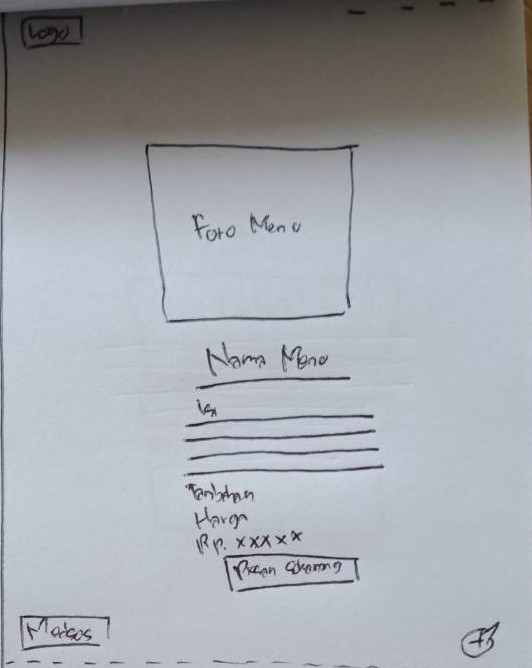 Logo
Foto Menu
Nama Menu
isi
Tambahan
Harga
Rp. xxxxx
Pesan Sekarang
Medsos